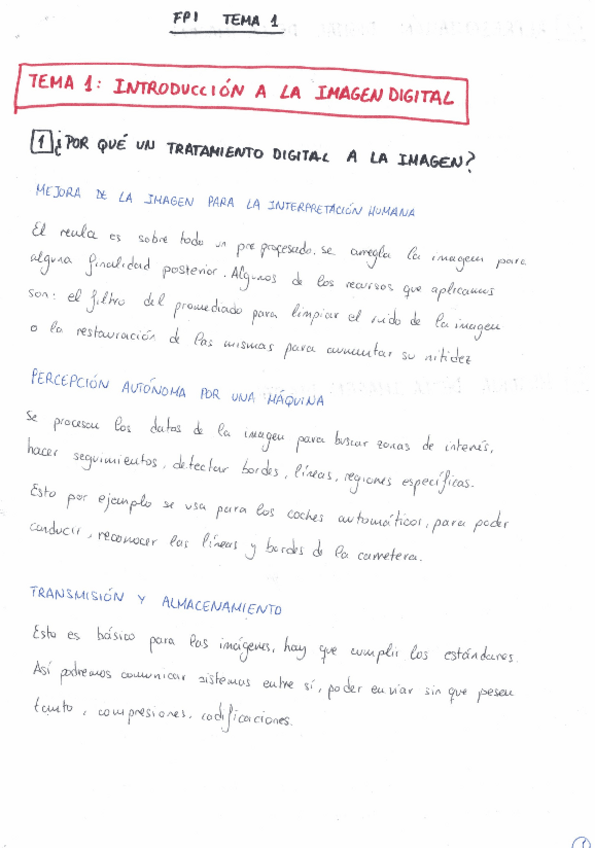 FPI TEMA 1
TEMA 1: INTRODUCCIÓN A LA IMAGEN DIGITAL
1 ¿POR QUÉ UN TRATAMIENTO DIGITAL A LA IMAGEN?
MEJORA DE LA IMAGEN PARA LA INTERPRETACIÓN HUMANA
El es sobre todo un pre procesado. se arregla la imagen para
alguna finalidad posterior. Algunos de los recursos que aplicamos
son: el filtro del promediado para limpiar el ruido de la imagen
o la restauración de las mismas para aumentar su nitidez
PERCEPCIÓN AUTÓNOMA POR UNA MÁQUINA
Se procesan los datos de la imagen para buscar zonas de interés,
hacer seguimientos, detectar bordes, líneas, regiones específicas.
Esto por ejemplo se usa para los coches automáticos, para poder
conducir, reconocer las líneas y bordes de la carretera.
TRANSMISIÓN Y ALMACENAMIENTO
Esto es básico para las imágenes, hay que cumplir los estándares.
Así podremos comunicar sistemas entre sí, poder enviar sin que pesen
tanto, compresiones, codificaciones.